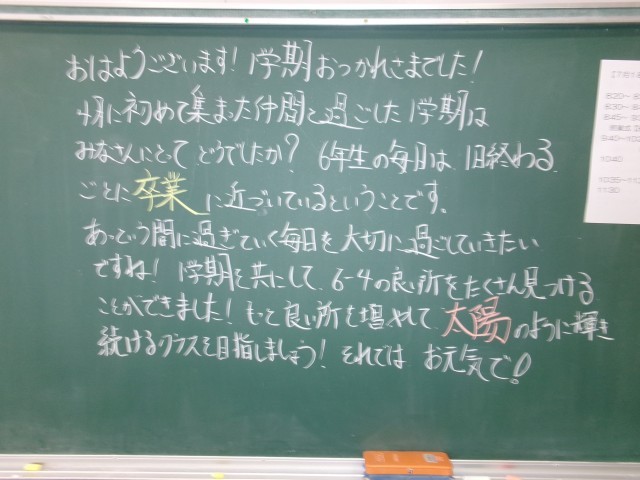 おはようございます！1学期おつかれさまでした！
4月に初めて集まった仲間と過ごした1学期は
みなさんにとってどうでしたか？6年生の毎日は、1日終わる
ごとに卒業に近づいているということです。
あっという間に過ぎていく毎日を大切に過ごしていきたい
ですね！1学期を共にして、6-4の良い所をたくさん見つける
ことができました！もっと良い所を増やして、太陽のように輝き
続けるクラスを目指しましょう！それでは、お元気で！
8:20～
8:30～
8:45～
9:40～
10:40
10:35～11
11:30